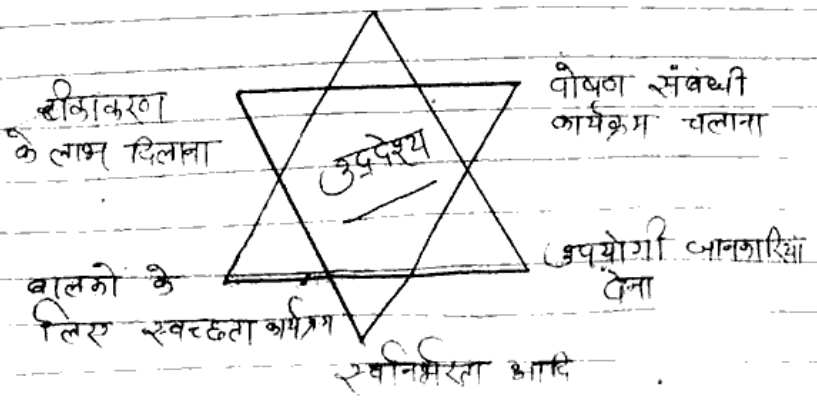 टीकाकरण
के लाभ दिलाना
पोषण संबंधी
कार्यक्रम चलाना
उद्देश्य
उपयोगी जानकारियां
देना
बालको के
लिए स्वच्छता कार्यक्रम
स्वनिर्भरता आदि